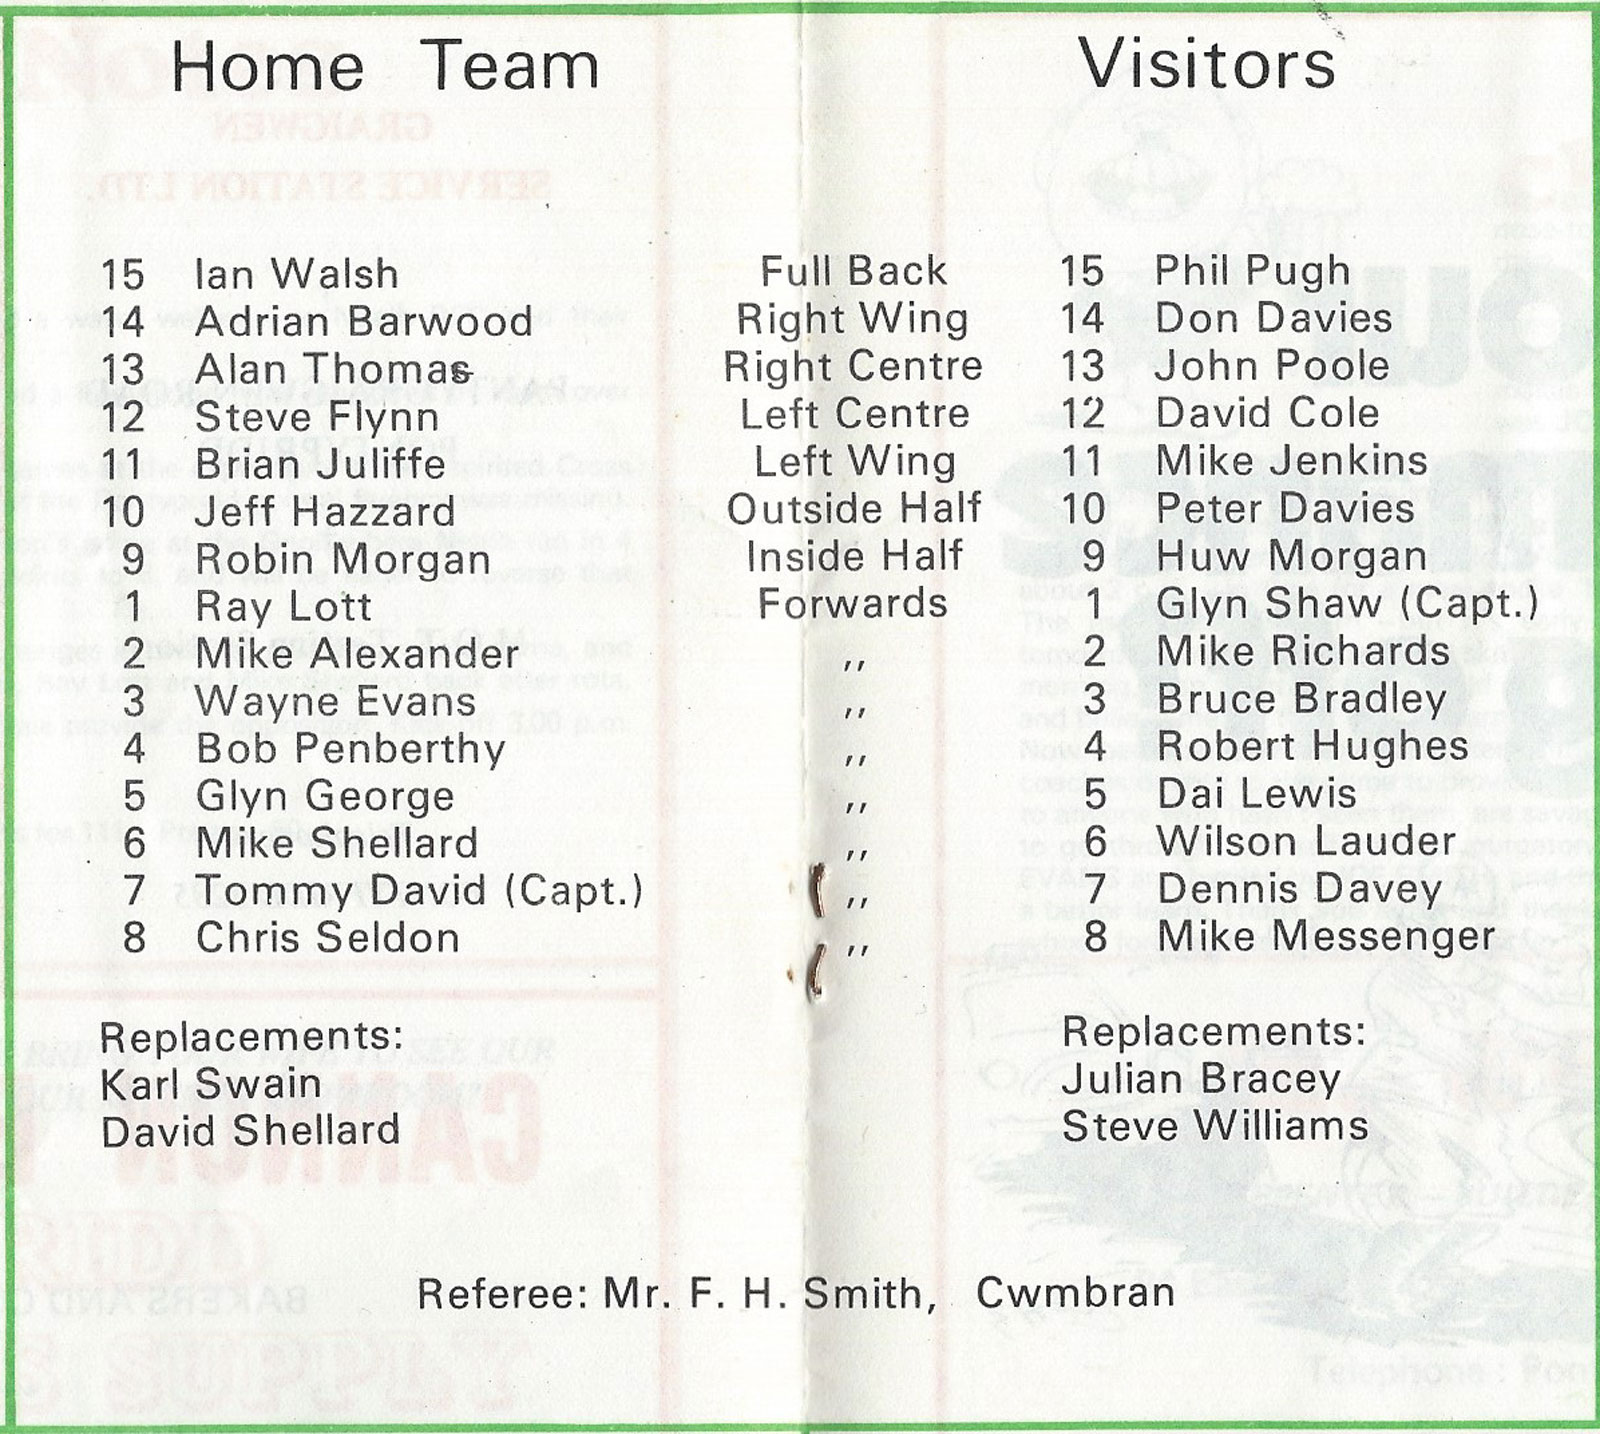 Home Team Visitors
15 Ian Walsh Full Back 15 Phil Pugh
14 Adrian Barwood Right Wing 14 Don Davies
13 Alan Thomas Right Centre 13 John Poole
12 Steve Flynn Left Centre 12 David Cole
11 Brian Juliffe Left Wing 11 Mike Jenkins
10 Jeff Hazzard Outside Half 10 Peter Davies
9 Robin Morgan Inside Half 9 Huw Morgan
1 Ray Lott Forwards 1 Glyn Shaw (Capt.)
2 Mike Alexander ,, 2 Mike Richards
3 Wayne Evans ,, 3 Bruce Bradley
4 Bob Penberthy ,, 4 Robert Hughes
5 Glyn George ,, 5 Dai Lewis
6 Mike Shellard ,, 6 Wilson Lauder
7 Tommy David (Capt.) ,, 7 Dennis Davey
8 Chris Seldon ,, 8 Mike Messenger
Replacements: Replacements:
Karl Swain Julian Bracey
David Shellard Steve Williams
Referee: Mr. F. H. Smith, Cwmbran